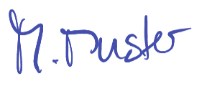 M. Muster